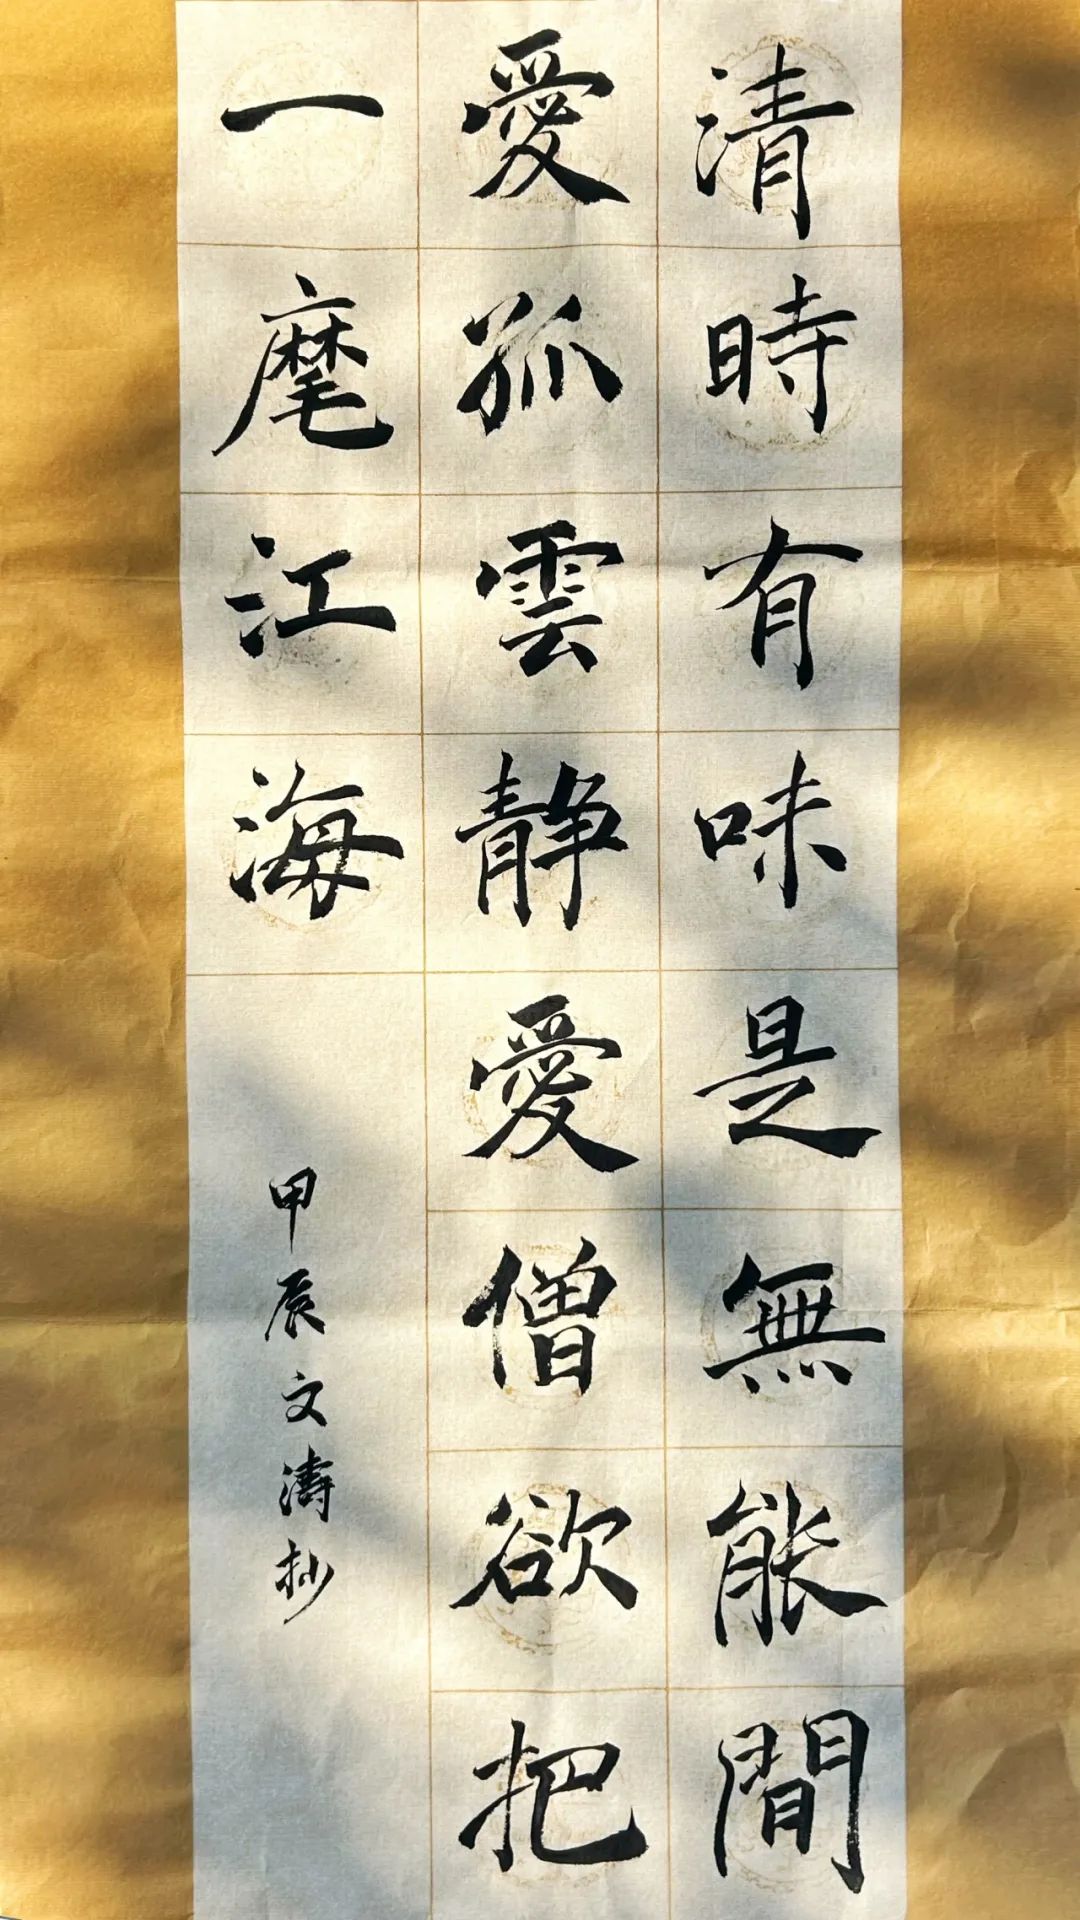 清時有味是無能閒
愛孤雲静愛僧欲把
一麾江海
甲辰文濤抄